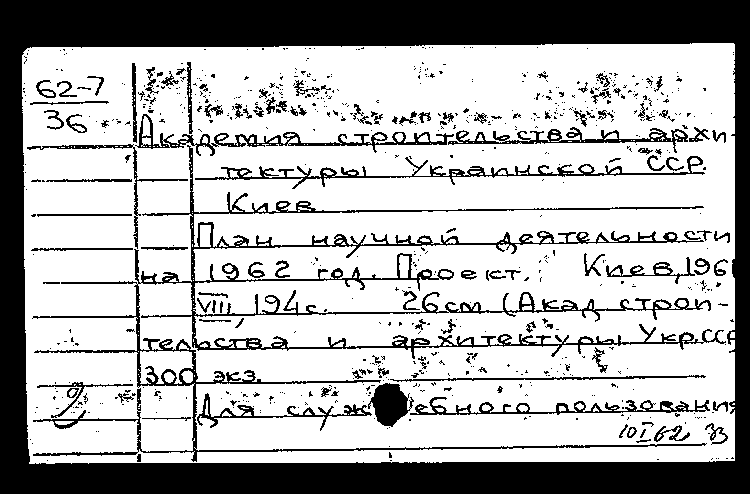 62-7
36
Академия строительства и архи-
тектуры Украинской ССР.
Киев
План научной деятельности
на 1962 год. Проект. Киев, 196
VIII, 194с. 26см (Акад строи-
тельства и архитектуры Укр.ССР
300 экз.
Для служебного пользования
10 I 62